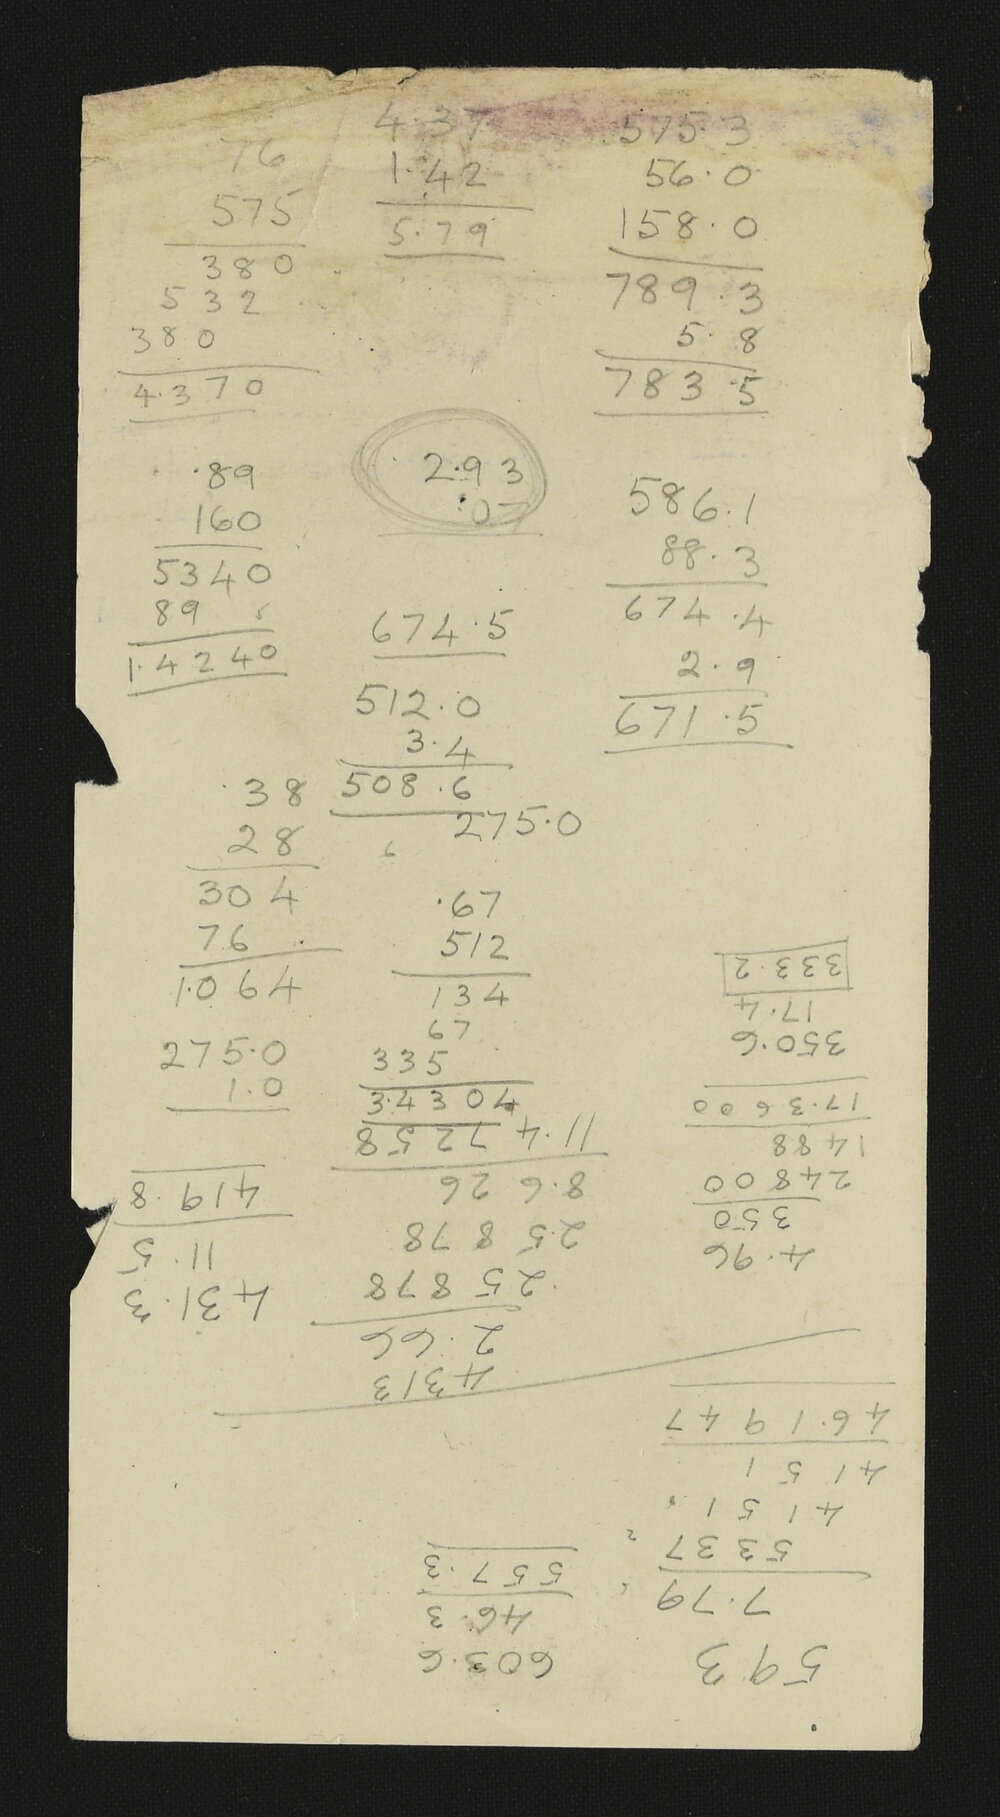 76
575
380
532
380
4.370
4.37
1.42
5.79
575.3
56.0
158.0
789.3
5.8
783.5
.89
160
5340
89
1.4240
2.93
.07
586.1
88.3
674.4
2.9
671.5
674.5
512.0
3.4
508.6
275.0
.38
28
304
76
1.064
275.0
1.0
.67
512
134
67
335
3.4304
593
7.79
5337
4151
4151
46.1947
603.6
46.3
557.3
4313
2.66
.25878
2.5878
8.626
11.47258
431.3
11.5
419.8
4.96
350
24800
1488
17.3600
350.6
17.4
333.2